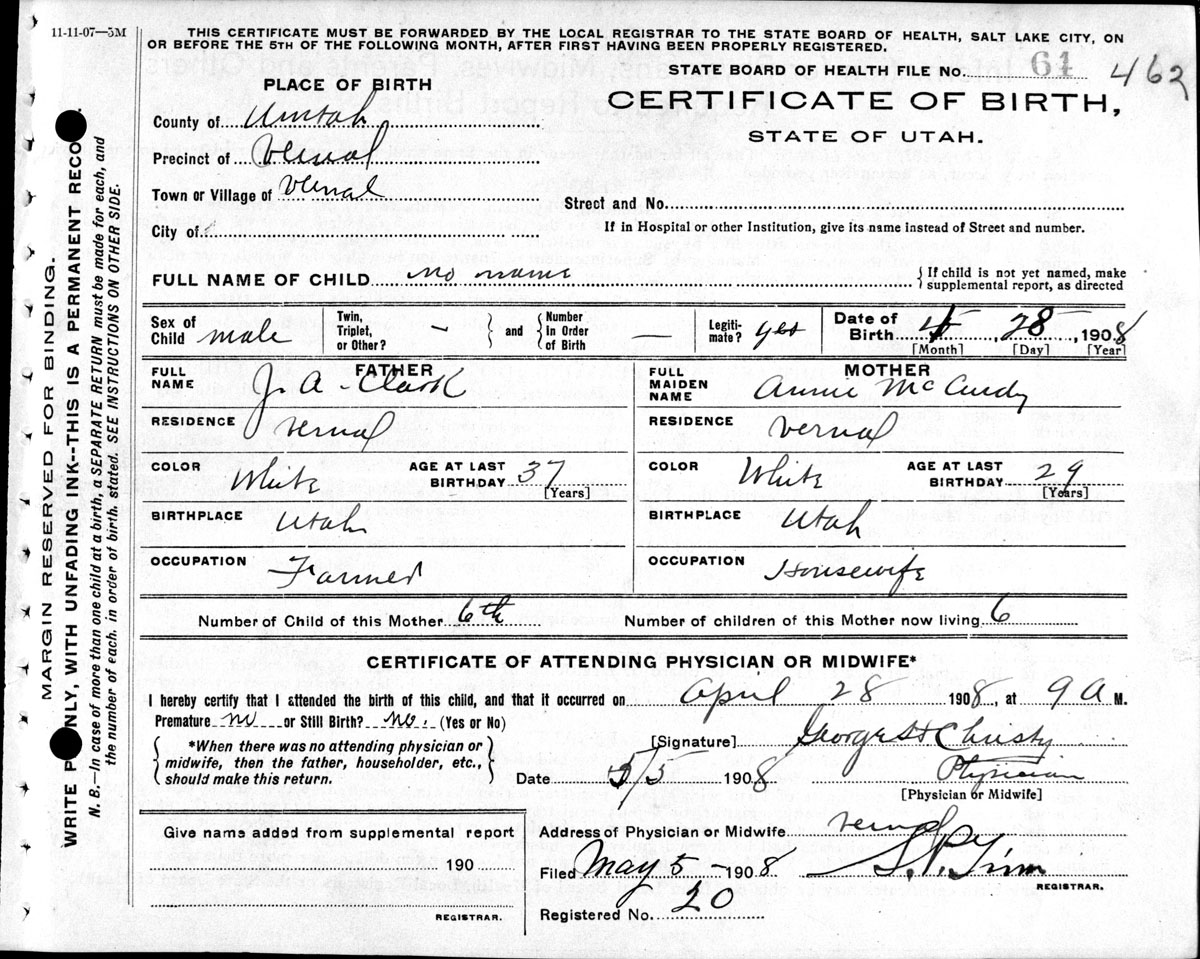 11-11-07—5M
THIS CERTIFICATE MUST BE FORWARDED BY THE LOCAL REGISTRAR TO THE STATE BOARD OF HEALTH, SALT LAKE CITY, ON
OR BEFORE THE 5TH OF THE FOLLOWING MONTH, AFTER FIRST HAVING BEEN PROPERLY REGISTERED.
STATE BOARD OF HEALTH FILE No. 61 462
PLACE OF BIRTH
CERTIFICATE OF BIRTH,
STATE OF UTAH.
County of Uintah
Precinct of Vernal
Town or Village of Vernal
Street and No.
City of
If in Hospital or other Institution, give its name instead of Street and number.
FULL NAME OF CHILD No name
{ If child is not yet named, make
supplemental report, as directed
Sex of Child male
Twin, Triplet, or Other? —
and
Number In Order of Birth —
Legiti-mate? yes
Date of Birth 4, 28, 1908
[Month] [Day] [Year]
FATHER
FULL NAME J. A. Clark
RESIDENCE Vernal
COLOR White
AGE AT LAST BIRTHDAY 37
[Years]
BIRTHPLACE Utah
OCCUPATION Farmer
MOTHER
FULL MAIDEN NAME Annie
RESIDENCE Vernal
COLOR White
AGE AT LAST BIRTHDAY 29
[Years]
BIRTHPLACE Utah
OCCUPATION Housewife
Number of Child of this Mother 6th
Number of children of this Mother now living 6
CERTIFICATE OF ATTENDING PHYSICIAN OR MIDWIFE*
I hereby certify that I attended the birth of this child, and that it occurred on April 28 1908, at 9 A M.
Premature no or Still Birth? No. (Yes or No)
*When there was no attending physician or
midwife, then the father, householder, etc.,
should make this return.
[Signature] George H Christy
Date 5/5 1908
Physician
[Physician or Midwife]
Give name added from supplemental report
190
REGISTRAR.
Address of Physician or Midwife Vernal
Filed May 5 - 1908
REGISTRAR.
Registered No. 20
MARGIN RESERVED FOR BINDING.
WRITE P NLY, WITH UNFADING INK--THIS IS A PERMANENT RECO .
N. B.—In case of more than one child at a birth, a SEPARATE RETURN must be made for each, and
the number of each, in order of birth, stated. SEE INSTRUCTIONS ON OTHER SIDE.